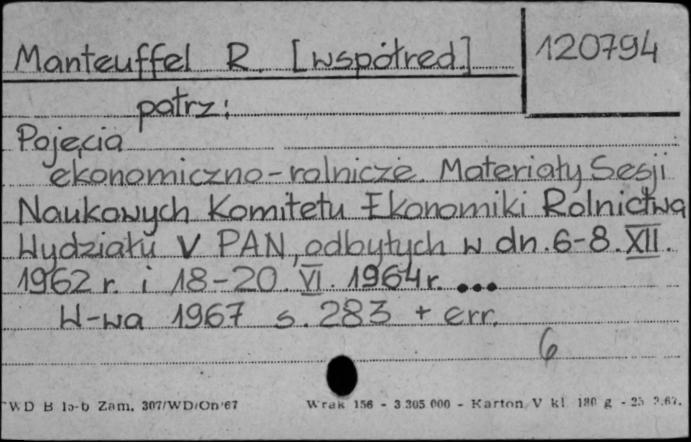 Manteuffel R. [współred.]
120794
patrz:
Pojęcia
ekonomiczno-rolnicze. Materiały Sesji
Naukowych Komitetu Ekonomiki Rolnictwa
Wydziału V PAN, odbytych w dn. 6-8. XII.
1962 r. i 18-20. VI. 1964 r. ...
W-wa 1967 s. 283 + err.
6
WD B Zam. 307/WD/On/67 Wrak 156 - 3.305.000 - Karton V kl. 180 g